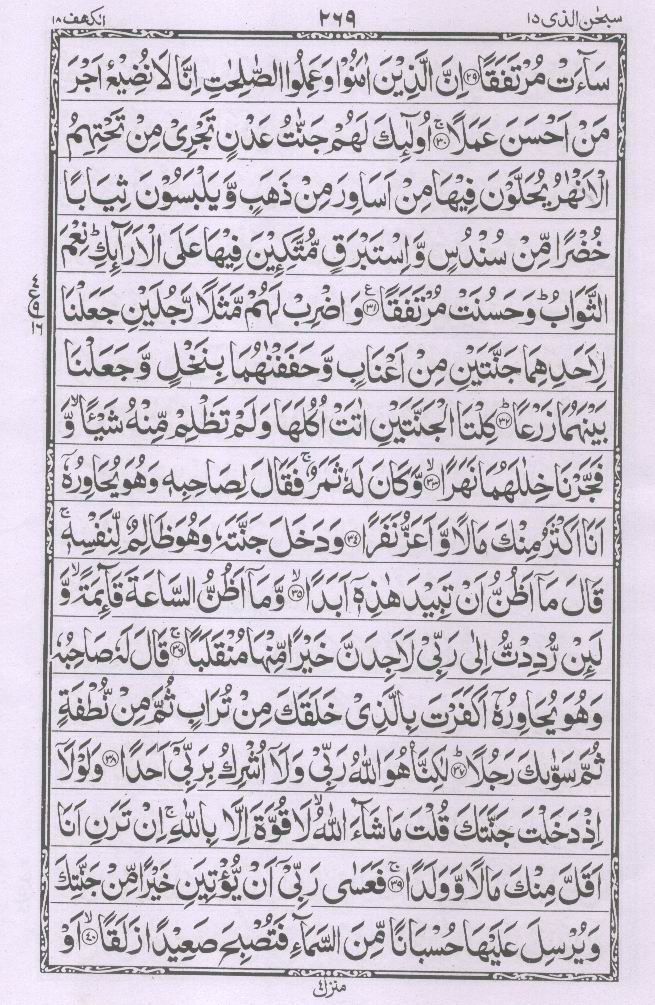 سبحٰن الذی ١٥ ٢٦٩ الکھف ١٨
سَآءَتْ مُرْتَفَقًا ﴿٢٩﴾ اِنَّ الَّذِيْنَ اٰمَنُوْا وَعَمِلُوا الصّٰلِحٰتِ اِنَّا لَا نُضِيْعُ اَجْرَ
مَنْ اَحْسَنَ عَمَلًا ﴿٣٠﴾ۚ اُولٰٓئِكَ لَهُمْ جَنّٰتُ عَدْنٍ تَجْرِىْ مِنْ تَحْتِهِمُ
الْاَنْهٰرُ يُحَلَّوْنَ فِيْهَا مِنْ اَسَاوِرَ مِنْ ذَهَبٍ وَّيَلْبَسُوْنَ ثِيَابًا
خُضْرًا مِّنْ سُنْدُسٍ وَّاِسْتَبْرَقٍ مُّتَّكِـِٕيْنَ فِيْهَا عَلَى الْاَرَآئِكِ ؕ نِعْمَ
الثَّوَابُ ؕ وَحَسُنَتْ مُرْتَفَقًا ﴿٣١﴾ع وَاضْرِبْ لَهُمْ مَّثَلًا رَّجُلَيْنِ جَعَلْنَا
ع ٤ ٩ ١٦
لِاَحَدِهِمَا جَنَّتَيْنِ مِنْ اَعْنَابٍ وَّحَفَفْنٰهُمَا بِنَخْلٍ وَّجَعَلْنَا
بَيْنَهُمَا زَرْعًا ﴿٣٢﴾ؕ كِلْتَا الْجَنَّتَيْنِ اٰتَتْ اُكُلَهَا وَلَمْ تَظْلِمْ مِّنْهُ شَيْـًٔا ۙ وَّ
فَجَّرْنَا خِلٰلَهُمَا نَهَرًا ﴿٣٣﴾ۙ وَّكَانَ لَهٗ ثَمَرٌ ۚ فَقَالَ لِصَاحِبِهٖ وَهُوَ يُحَاوِرُهٗۤ
اَنَا اَكْثَرُ مِنْكَ مَالًا وَّاَعَزُّ نَفَرًا ﴿٣٤﴾ وَدَخَلَ جَنَّتَهٗ وَهُوَ ظَالِمٌ لِّنَفْسِهٖ ۚ
قَالَ مَاۤ اَظُنُّ اَنْ تَبِيْدَ هٰذِهٖۤ اَبَدًا ﴿٣٥﴾ۙ وَّمَاۤ اَظُنُّ السَّاعَةَ قَآئِمَةً ۙ وَّ
لَئِنْ رُّدِدْتُّ اِلٰى رَبِّىْ لَاَجِدَنَّ خَيْرًا مِّنْهَا مُنْقَلَبًا ﴿٣٦﴾ۚ قَالَ لَهٗ صَاحِبُهٗ
وَهُوَ يُحَاوِرُهٗۤ اَكَفَرْتَ بِالَّذِىْ خَلَقَكَ مِنْ تُرَابٍ ثُمَّ مِنْ نُّطْفَةٍ
ثُمَّ سَوّٰٮكَ رَجُلًا ﴿٣٧﴾ؕ لٰـكِنَّا۟ هُوَ اللّٰهُ رَبِّىْ وَلَاۤ اُشْرِكُ بِرَبِّىْۤ اَحَدًا ﴿٣٨﴾ وَلَوْلَاۤ
اِذْ دَخَلْتَ جَنَّتَكَ قُلْتَ مَا شَآءَ اللّٰهُ ۙ لَا قُوَّةَ اِلَّا بِاللّٰهِ ۚ اِنْ تَرَنِ اَنَا
اَقَلَّ مِنْكَ مَالًا وَّوَلَدًا ﴿٣٩﴾ۚ فَعَسٰى رَبِّىْۤ اَنْ يُّؤْتِيَنِ خَيْرًا مِّنْ جَنَّتِكَ
وَيُرْسِلَ عَلَيْهَا حُسْبَانًا مِّنَ السَّمَآءِ فَتُصْبِحَ صَعِيْدًا زَلَقًا ﴿٤٠﴾ۙ اَوْ
منزل ٤